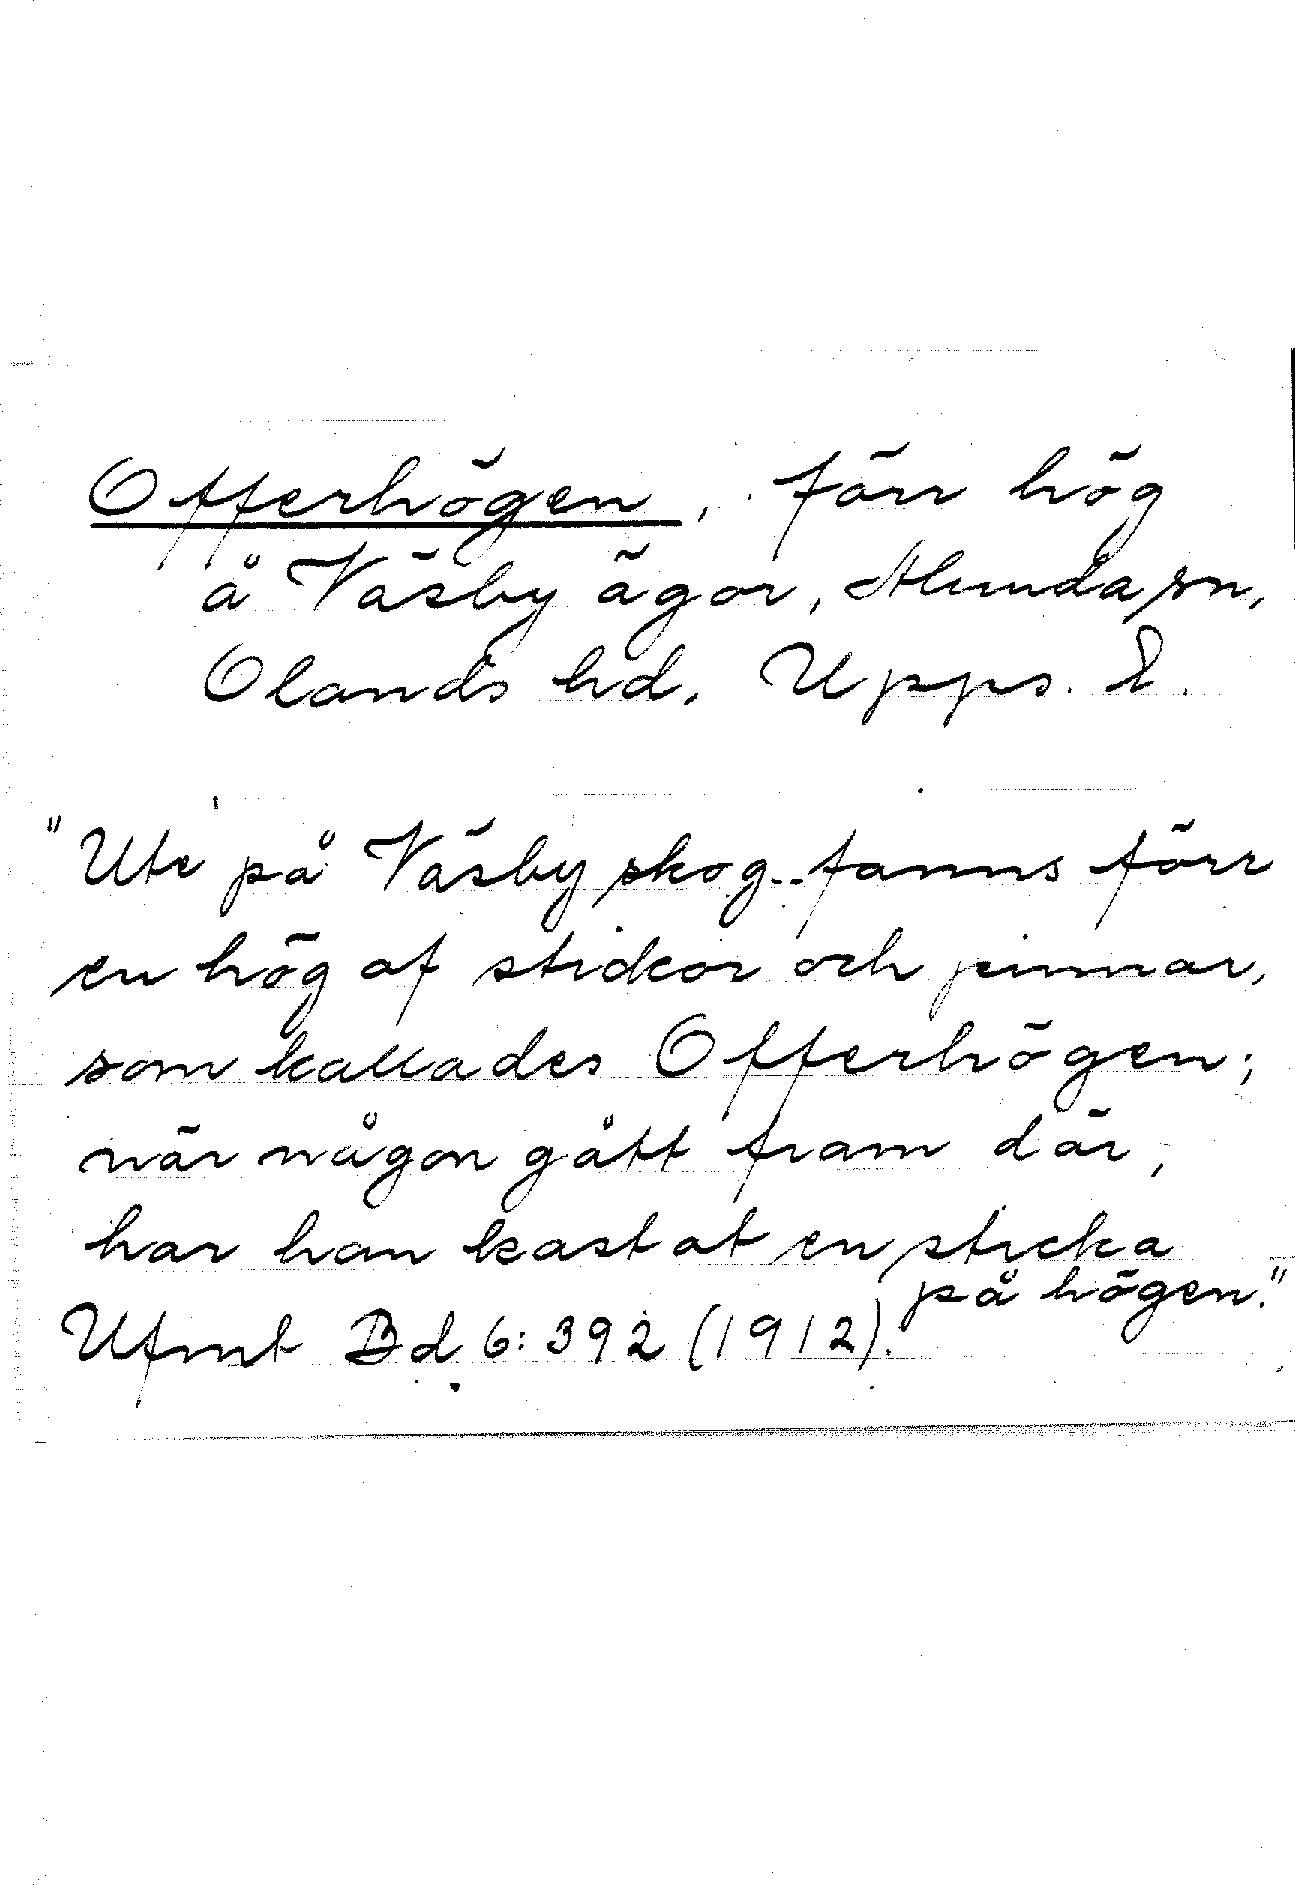 Offerhögen, förr hög
å Väsby ägor, Alunda sn,
Olands hd. Upps. l.
"Ute på Väsby skog.. fanns förr
en hög af stickor och pinnar,
som kallades Offerhögen;
när någon gått fram där,
har han kastat en sticka
på högen."
Ufmt Bd 6:392 (1912).